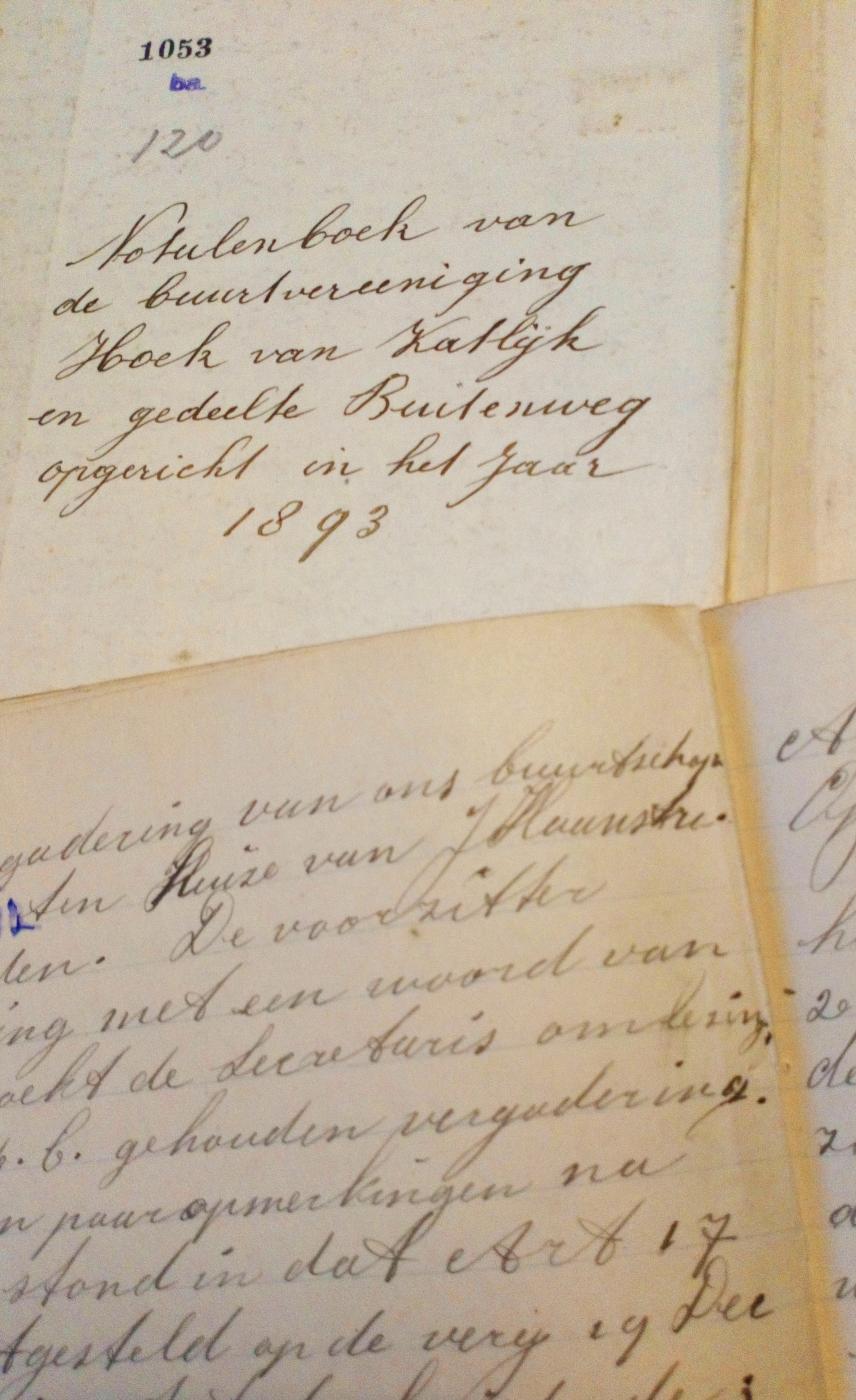 1053
ba.
120
Notulenboek van
de buurtvereeniging
Hoek van Katlijk
en gedeelte Buitenweg
opgericht in het Jaar
1893
gadering van ons buurtschap
ten Huize van J Haanstra.
den. De voorzitter
ing met een woord van
oekt de Secretaris om lezing
b. gehouden vergadering.
n paar opmerkingen na
stond in dat Art 17
tgesteld op de verg 19 Dec
A
h
2e
de